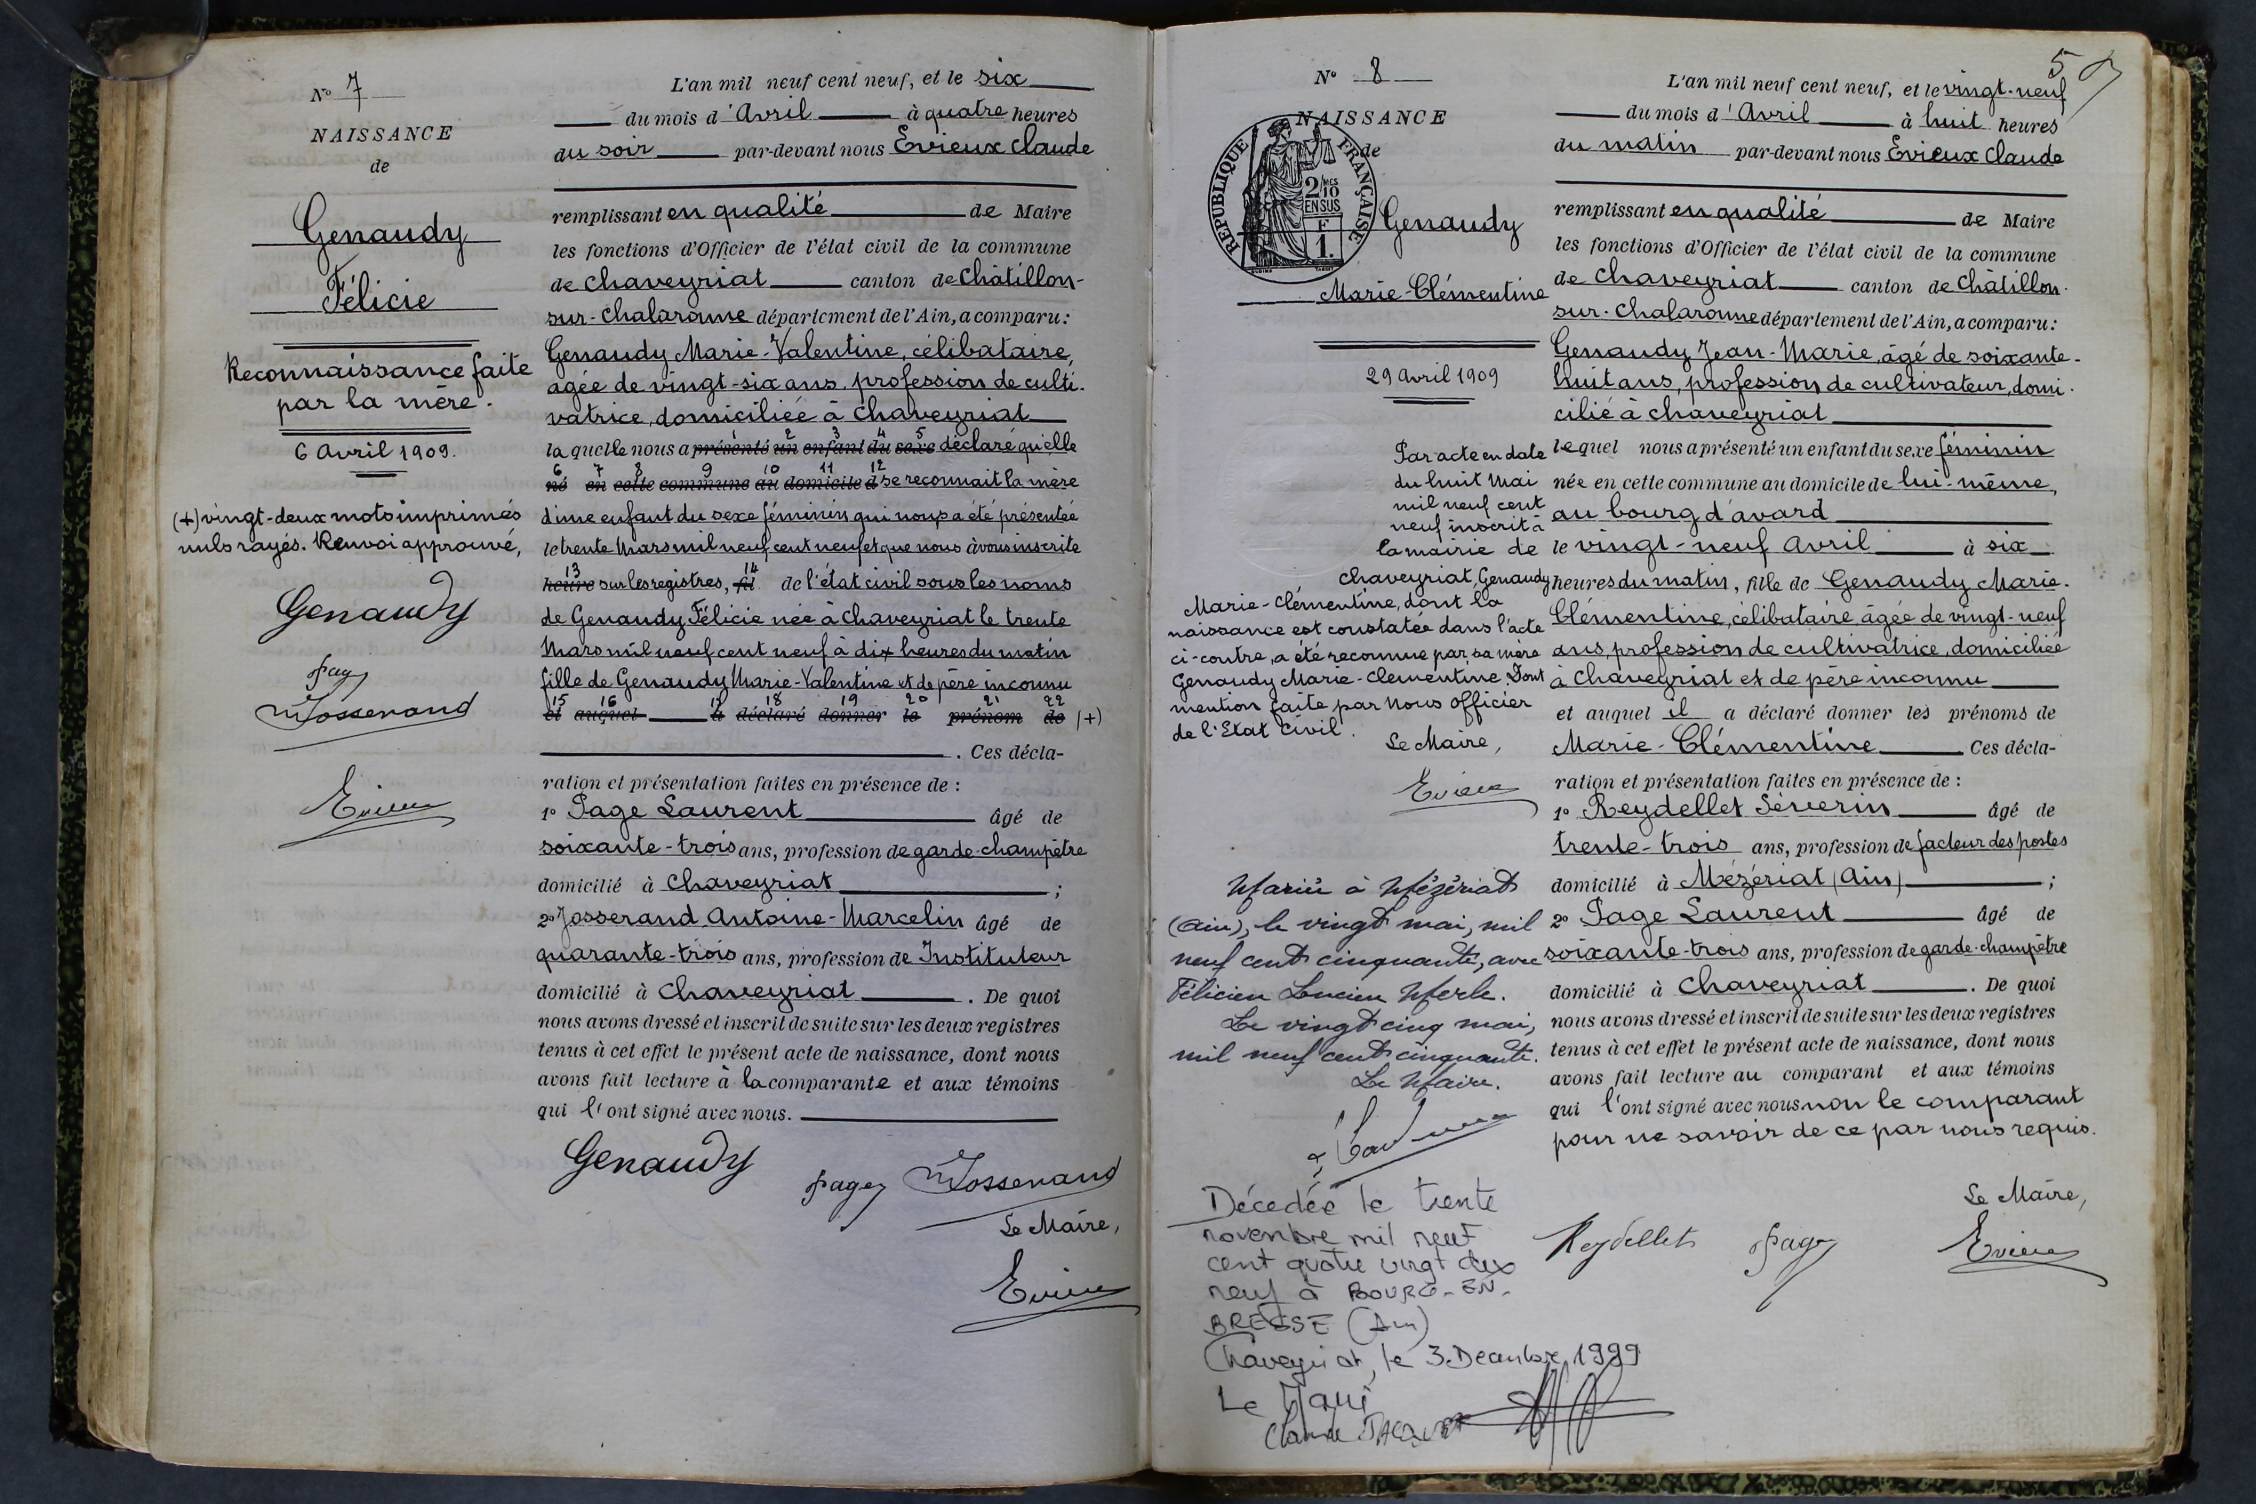 N° 7
NAISSANCE
de
Genaudy
Félicie
Reconnaissance faite
par la mère.
6 Avril 1909.
(+) vingt-deux mots imprimés
nuls rayés. Renvoi approuvé,
Genaudy
Page
Josserand
Evieux
L'an mil neuf cent neuf, et le six
du mois d'Avril à quatre heures
du soir par-devant nous Evieux Claude
remplissant en qualité de Maire
les fonctions d'Officier de l'état civil de la commune
de Chaveyriat canton de Châtillon-
sur-Chalaronne département de l'Ain, a comparu:
Genaudy Marie-Valentine, célibataire,
agée de vingt-six ans, profession de culti-
vatrice, domiciliée à Chaveyriat
la quelle nous a présenté un enfant du sexe déclaré qu'elle
1 2 3 4 5
6 7 8 9 10 11 12
né en cette commune au domicile d se reconnait la mère
d'une enfant du sexe féminin qui nous a été présentée
le trente Mars mil neuf cent neuf et que nous avons inscrite
13 14
heure sur les registres, fil de l'état civil sous les noms
de Genaudy Félicie née à Chaveyriat le trente
Mars mil neuf cent neuf à dix heures du matin
fille de Genaudy Marie-Valentine et de père inconnu
15 16 17 18 19 20 21 22
et auquel a déclaré donner le prénom de (+)
. Ces décla-
ration et présentation faites en présence de :
1° Page Laurent âgé de
soixante-trois ans, profession de garde-champêtre
domicilié à Chaveyriat ;
2° Josserand Antoine-Marcelin âgé de
quarante-trois ans, profession de Instituteur
domicilié à Chaveyriat . De quoi
nous avons dressé et inscrit de suite sur les deux registres
tenus à cet effet le présent acte de naissance, dont nous
avons fait lecture à la comparante et aux témoins
qui l'ont signé avec nous.
Genaudy Page Josserand
Le Maire,
Evieux
5
N° 8
NAISSANCE
de
RÉPUBLIQUE FRANÇAISE
2/10 MES
EN SUS
F
1.
Genaudy
Marie-Clémentine
29 Avril 1909
Par acte en date
du huit Mai
mil neuf cent
neuf inscrit à
la mairie de
Chaveyriat, Genaudy
Marie-Clémentine, dont la
naissance est constatée dans l'acte
ci-contre, a été reconnue par sa mère
Genaudy Marie-Clementine. Dont
mention faite par Nous Officier
de l'Etat Civil.
Le Maire,
Evieux
Mariée à Mézériat
(Ain), le vingt mai, mil
neuf cent cinquante, avec
Félicien Lucien Merle.
Le vingt cinq mai,
mil neuf cent cinquante.
Le Maire.
Décedée le trente
novembre mil neuf
cent quatre vingt dix
neuf à BOURG-EN-
BRESSE (Ain)
Chaveyriat, le 3 Decembre 1999
Le Maire
L'an mil neuf cent neuf, et le vingt-neuf
du mois d'Avril à huit heures
du matin par-devant nous Evieux Claude
remplissant en qualité de Maire
les fonctions d'Officier de l'état civil de la commune
de Chaveyriat canton de Châtillon-
sur-Chalaronne département de l'Ain, a comparu:
Genaudy Jean-Marie, âgé de soixante-
huit ans, profession de cultivateur, domi-
cilié à Chaveyriat
lequel nous a présenté un enfant du sexe féminin
née en cette commune au domicile de lui-même,
au bourg d'avard
le vingt-neuf Avril à six
heures du matin, fille de Genaudy Marie-
Clémentine, célibataire âgée de vingt-neuf
ans, profession de cultivatrice, domiciliée
à Chaveyriat et de père inconnu
et auquel il a déclaré donner les prénoms de
Marie-Clémentine Ces décla-
ration et présentation faites en présence de :
1° Reydellet Séverin âgé de
trente-trois ans, profession de facteur des postes
domicilié à Mézériat (Ain) ;
2° Page Laurent âgé de
soixante-trois ans, profession de garde-champêtre
domicilié à Chaveyriat . De quoi
nous avons dressé et inscrit de suite sur les deux registres
tenus à cet effet le présent acte de naissance, dont nous
avons fait lecture au comparant et aux témoins
qui l'ont signé avec nous non le comparant
pour ne savoir de ce par nous requis.
Le Maire,
Reydellet Page Evieux